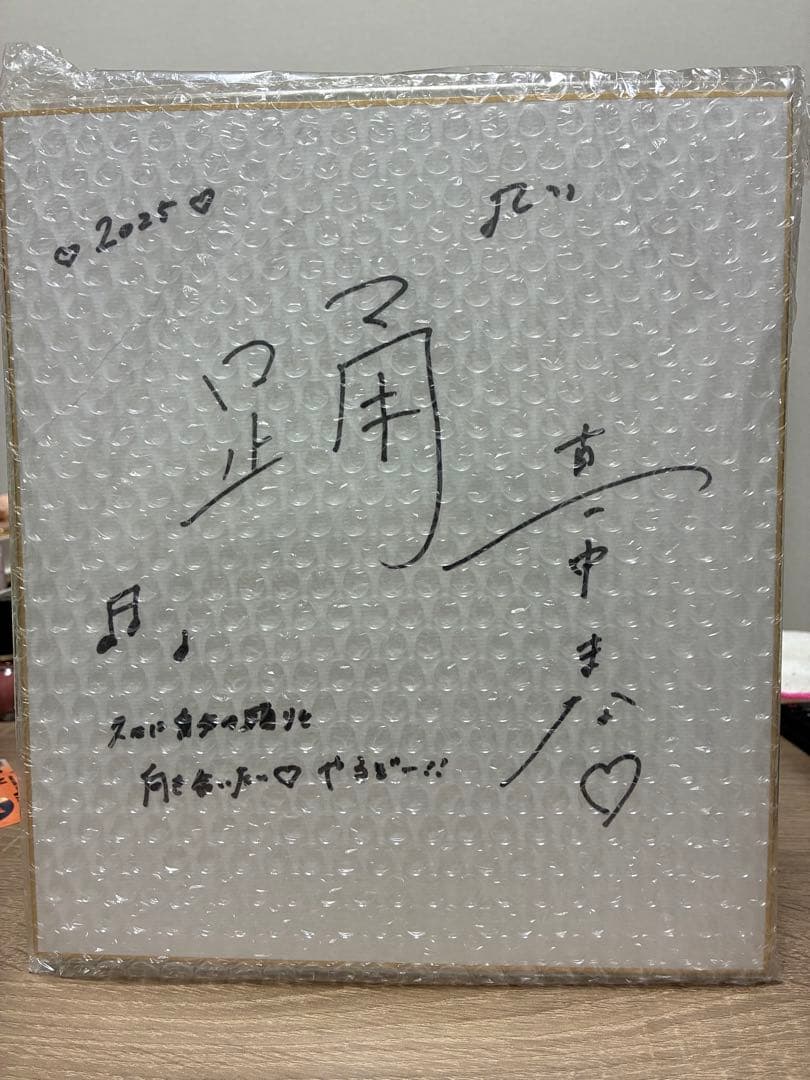 ♡2025♡
踊
真中まな♡
自分の踊りと
向き合いたい♡やるぞー!!